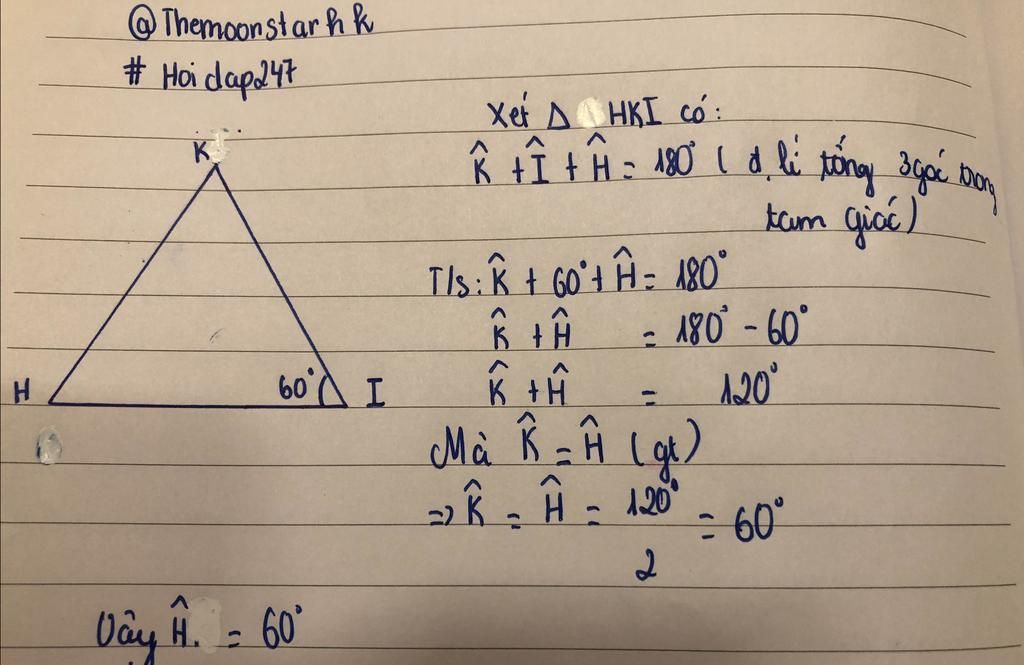 @Themoonstarhk
# Hoidap247
Xét Δ HKI có:
K̂ + Î + Ĥ = 180° ( đ.lí tổng 3 góc trong
tam giác)
K
T/s: K̂ + 60° + Ĥ = 180°
K̂ + Ĥ = 180° - 60°
H 60° I
K̂ + Ĥ = 120°
Mà K̂ = Ĥ (gt)
=> K̂ = Ĥ = 120°/2 = 60°
Vậy Ĥ. = 60°